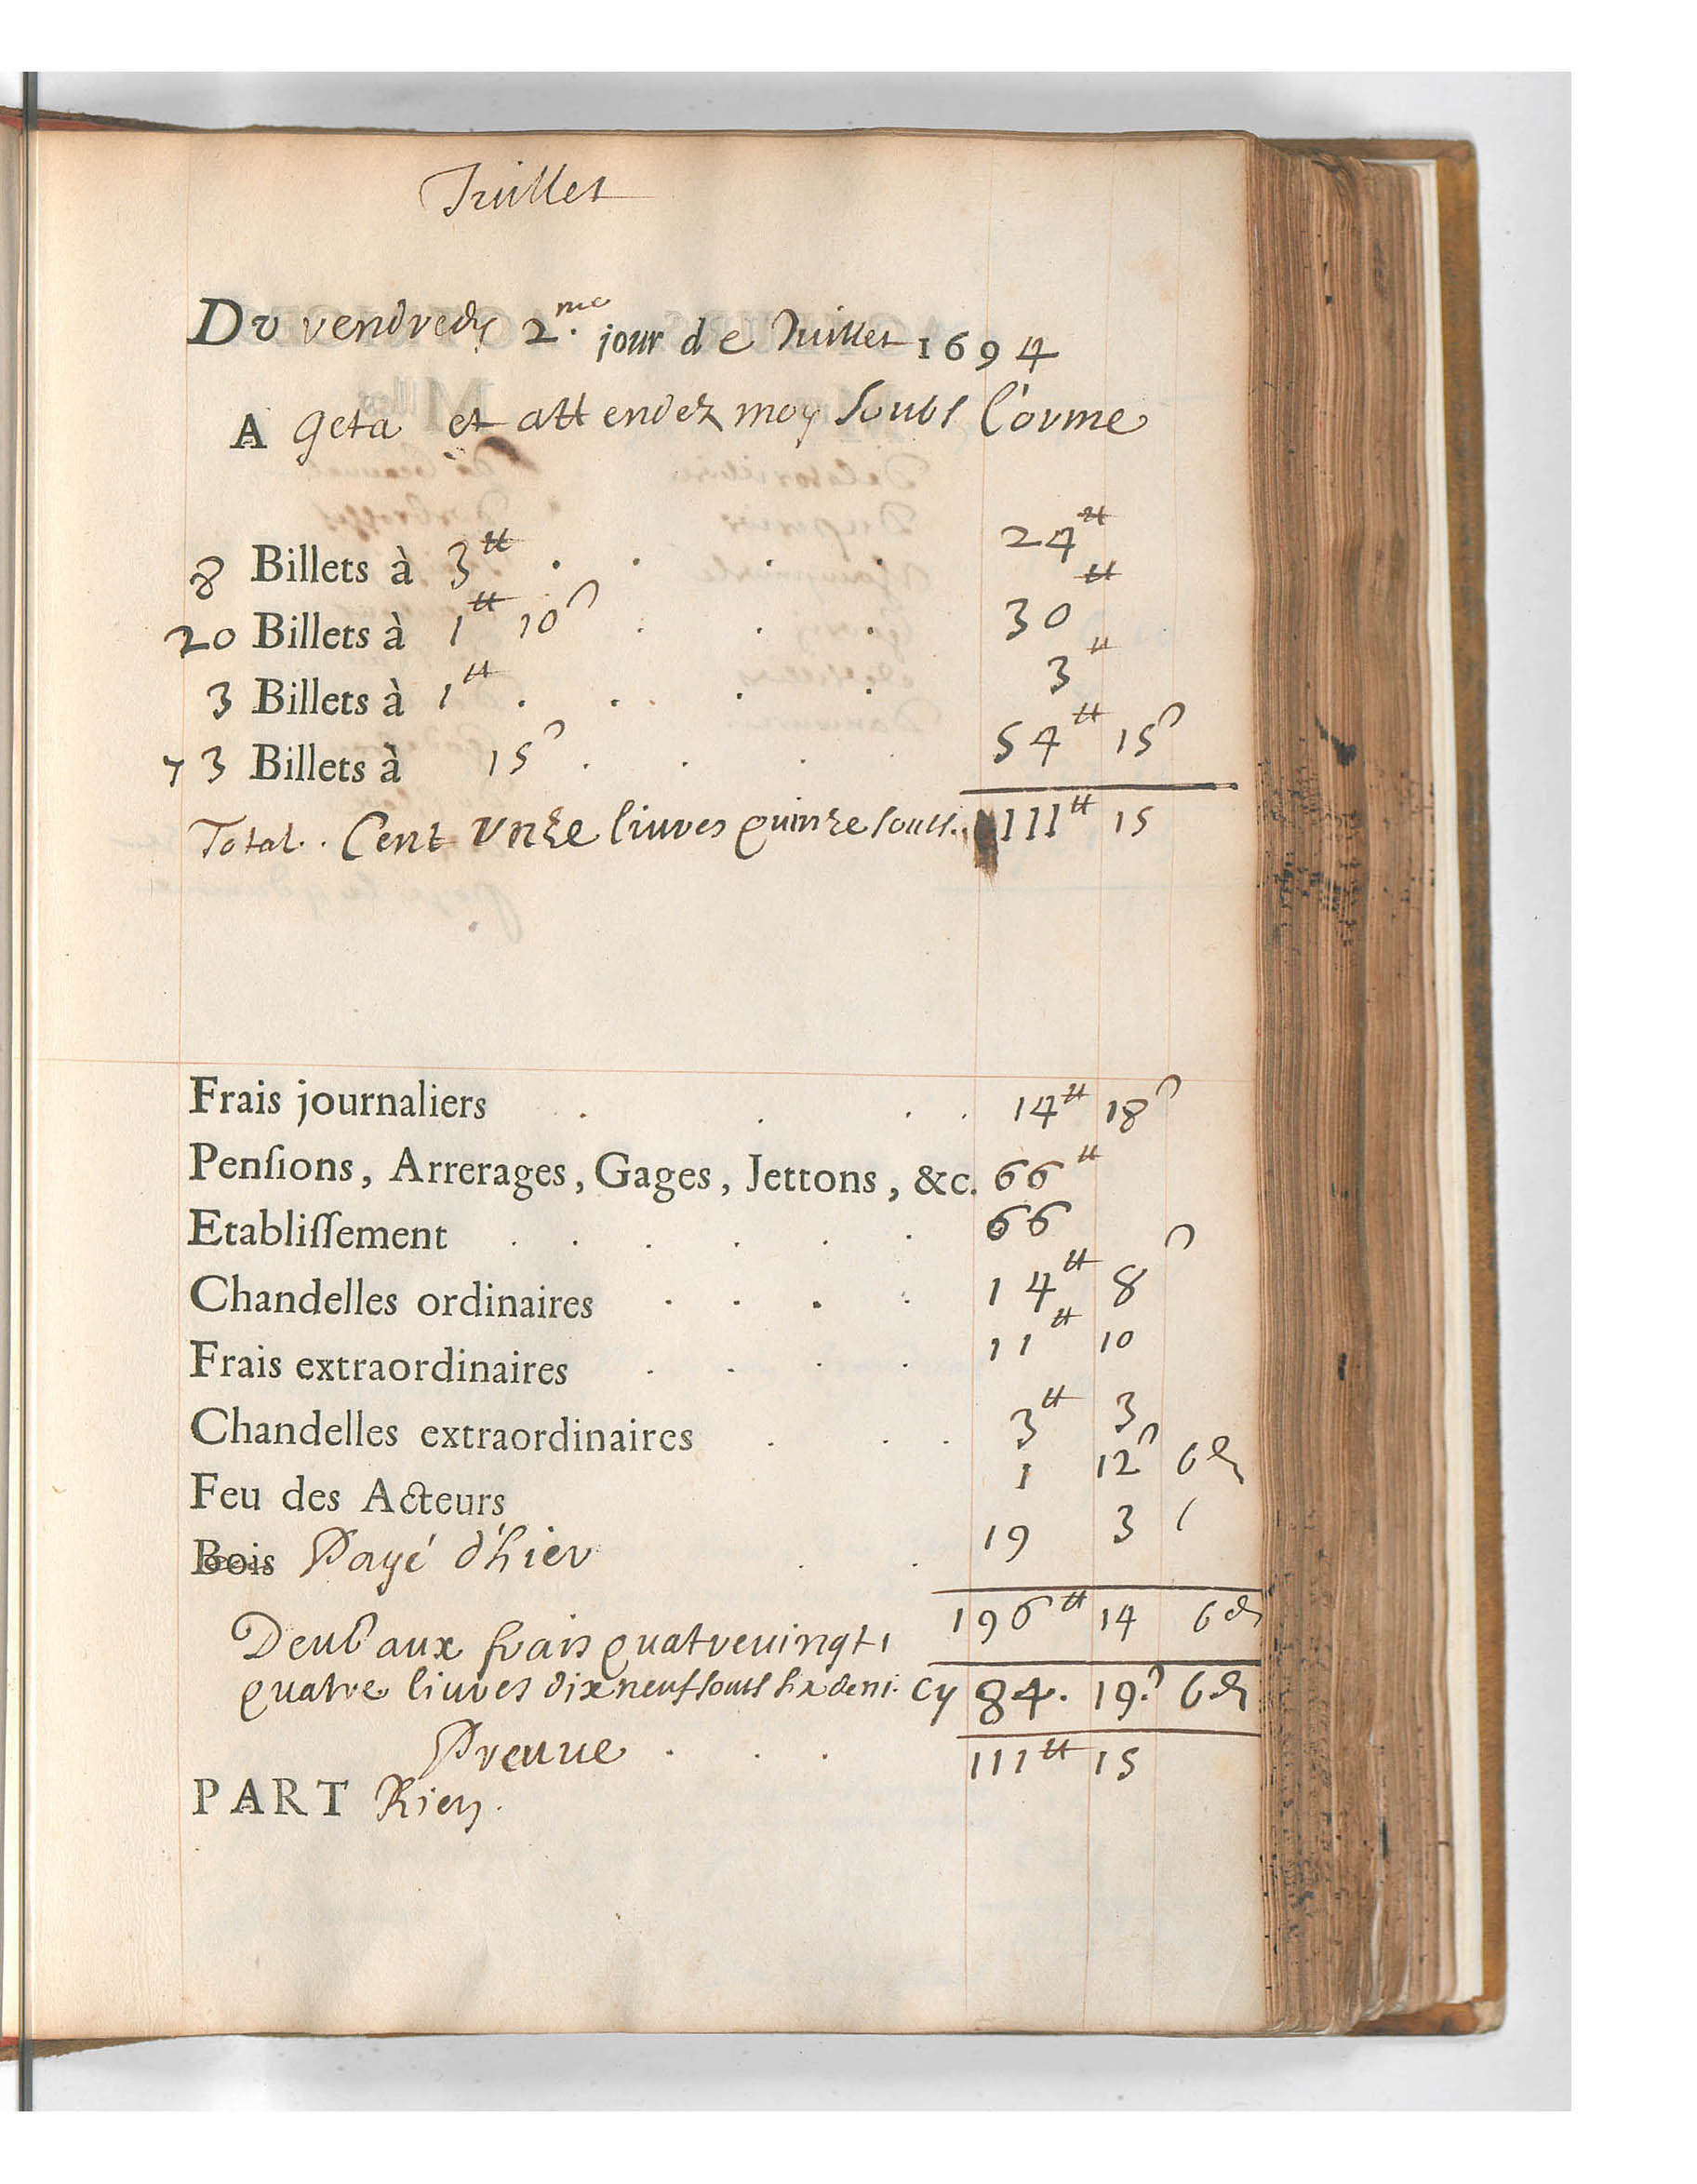 Juillet
Du vendredy 2.me jour de Juillet 1694
A Geta et attendez moy soubs l'orme
8 Billets à 3# . . . . 24#
20 Billets à 1# 10s . . . 30#
3 Billets à 1# . . . . 3#
73 Billets à 15s . . . . 54# 15s
Total. . Cent unze liures quinze souls. 111# 15
Frais journaliers . . . . 14# 18s
Penſions, Arrerages, Gages, Jettons, &c. 66#
Etabliſſement . . . . . . 66
Chandelles ordinaires . . . . 14# 8s
Frais extraordinaires . . . . 11# 10
Chandelles extraordinaires . . . 3# 3
Feu des Acteurs 1 12s 6d
Bois Payé d'hier . . 19 3
196# 14 6d
Deub aux frais quatreuingts
quatre liures dixneuf souls six deni. Cy 84. 19.s 6d
Preuue . . . 111# 15
PART Rien.